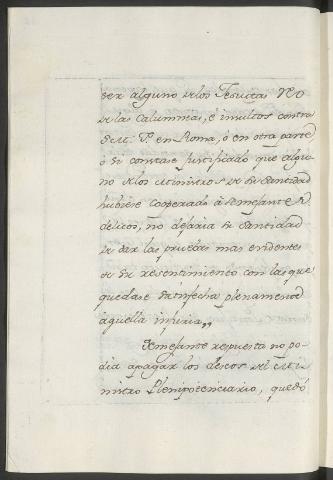 ser alguno de los Jesuitas reo
de las calumnias, é insultos contra
S. M. F.ª en Roma, ó en otra parte,
ó si constase justificado que algu-
no de los Ministros de Su Santidad
hubiese cooperado á semejante
delicto, no dejaria Su Santidad
de dar las pruebas mas evidentes
de su resentimiento con las que
quedase satisfecha plenamente
aquella injuria,,
Semejante respuesta no po-
dia apagar los deseos del Mi-
nistro Plenipotenciario, quedó